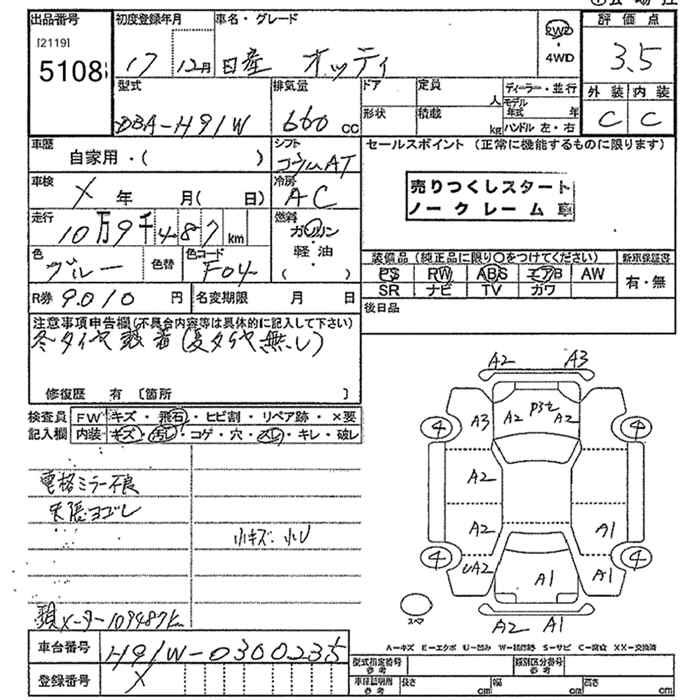 出品番号
[2119]
5108
初度登録年月
17 12月
車名・グレード
日産 オッティ
2WD
・
4WD
評価点
3.5
外装 内装
C C
型式
DBA-H91W
排気量
660 cc
ドア
形状
定員
人
積載
kg
ディーラー・並行
モデル
年式 年
ハンドル 左・右
車歴
自家用・( )
シフト
コラムAT
車検
X 年 月( 日)
冷房
AC
走行
10万9千487 km
燃料
ガソリン
軽油
( ・ )
色
ブルー
色替
色コード
F04
R券 9010 円
名変期限 月 日
セールスポイント (正常に機能するものに限ります)
売りつくしスタート
ノークレーム車
装備品 (純正品に限り○をつけてください)
新車保証書
PS RW ABS エアB AW
SR ナビ TV カワ
有・無
後日品
注意事項申告欄(不具合内容等は具体的に記入して下さい)
冬タイヤ装着(夏タイヤ無し)
修復歴 有 〔箇所 〕
検査員
記入欄
FW キズ・飛石・ヒビ割・リペア跡・×要
内装 キズ・汚レ・コゲ・穴・スレ・キレ・破レ
電格ミラー不良
天張ヨゴレ
小キズ、小U
現メーター109487km
車台番号
H91W-0300235
登録番号
X
A2 A3
A3 A2 P3セ A2
4 4
A2
A2 A1
4 4
UA2 A1 A1
スペア
A2 A1
A-キズ E-エクボ U-凹み W-補修跡 S-サビ C-腐食 XX-交換済
型式指定番号
参考
類別区分番号
参考
車体証明用
参考
長さ cm
幅 cm
高さ cm